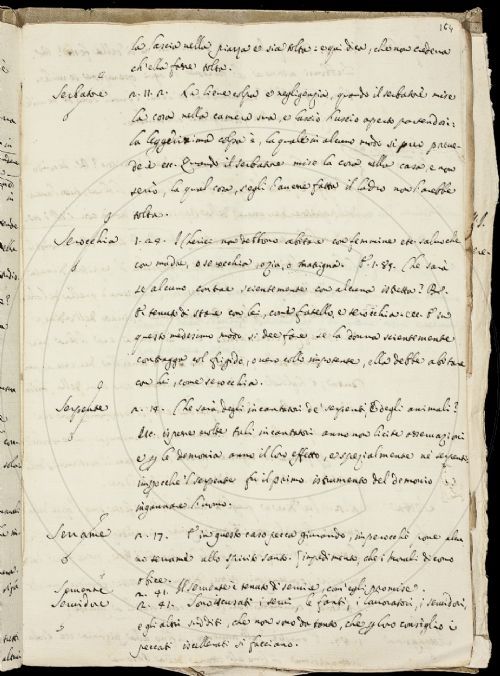 164
la lascia nella piazza e sia tolta: e qui dica, che non credeva
ch'ella fosse tolta.
Serbatore n. 11. 2. La lieve colpa è negligenzia, quando il serbatore mise
la cosa nella camera sua, e lasciò l'uscio aperto partendosi:
la leggerissima colpa è, la quale in alcuno modo si può preve-
dere ecc. Quando il serbatore mise la cosa nella casa e non
serrò, la qual cosa, s'egli l'avesse fatta il ladro non l'arebbe
tolta.
Serocchia 1. 29. I Cherici non debbono abitare con femmine etc. salvo che
con madre, o serocchia, o zia, o matrigna. 1. 85. Che sarà
se alcuno contrae scientemente con alcuna
È tenuto di stare con lei, come fratello, e serocchia. ecc. E in
questo medesimo modo si dee fare, se la donna scientemente
contragga col frigido, o vero collo impotente, ella debbe abitare
con lui, come serocchia.
Serpente n. 19. Che sarà degli incantatori de' serpenti, e degli animali?
molte tali incantatori anno non licite osservazioni
e le demonia anno il loro effetto, e spezialmente ne' serpenti
impocchè 'l serpente fu il primo istrumento del demonio
ingannare l'uomo.
Serrame n. 17. E in questo caso pecca giurando, imperocchè pone alcu
no serrame allo spirito santo. impedimento, che i morali dicono
obice.
n. 41. Il servente è tenuto di servire, com'egli promise.
Servidore n. 41. Sono scusati i servi, le fanti, i lavoratori, i servidori,
e gli altri sudditi, che non sono da tanto, che loro consiglio i
peccati si facciano.